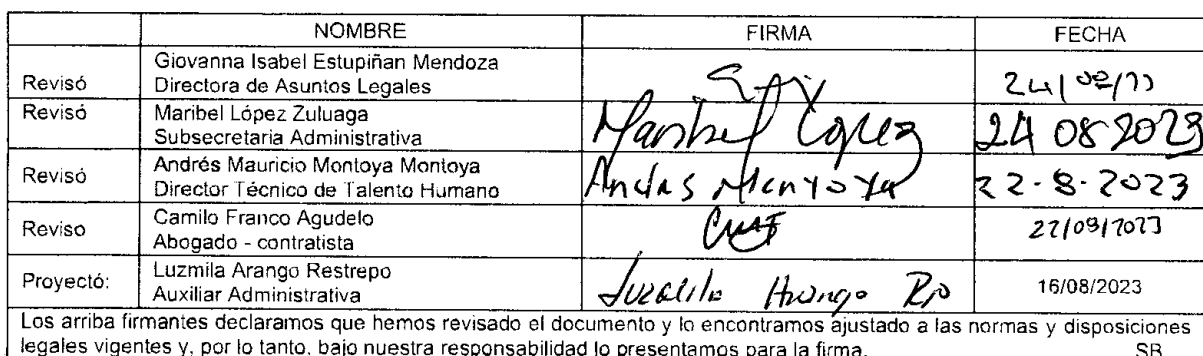 NOMBRE FIRMA FECHA
Giovanna Isabel Estupiñan Mendoza
Revisó Directora de Asuntos Legales
Revisó Maribel López Zuluaga
Subsecretaria Administrativa Maribel López 24 08 2023
Andrés Mauricio Montoya Montoya
Revisó Director Técnico de Talento Humano Andrés Montoya 22-8-2023
Camilo Franco Agudelo
Reviso Abogado - contratista
Luzmila Arango Restrepo
Proyectó: Auxiliar Administrativa 16/08/2023
Los arriba firmantes declaramos que hemos revisado el documento y lo encontramos ajustado a las normas y disposiciones
legales vigentes y, por lo tanto, bajo nuestra responsabilidad lo presentamos para la firma. SB